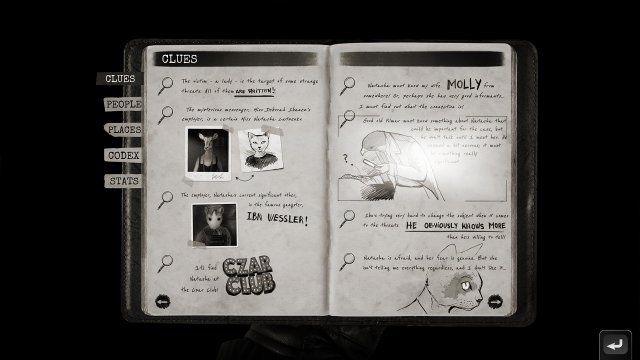 CLUES
CLUES
PEOPLE
PLACES
CODEX
STATS
The victim - a lady - is the target of some strange
threats. All of them ARE WRITTEN!
The mysterious messenger, Miss Deborah
employer, is a certain Miss Natasha
The employer, Natasha's current significant other,
is the famous gangster,
IBN WESSLER!
I'll find
Natasha at
the Czar Club!
CZAR
CLUB
Natasha must know my wife MOLLY from
somewhere! Or, perhaps she has very good informants...
I must find out what the connection is!
Good old Kilmer must know something about Natasha that
could be important for the case, but
he won't talk until I meet her. He
seemed a bit nervous, it must
be something really
significant.
?.
Ibn's trying very hard to change the subject when it comes
to the threats. HE OBVIOUSLY KNOWS MORE
than he's willing to tell!
Natasha is afraid, and her fear is genuine. But she
isn't telling me everything regardless, and I don't like it...